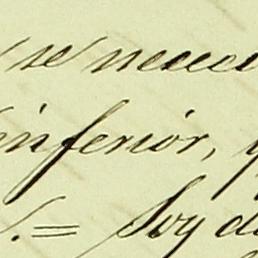 se necec
inferior,
= Soy de